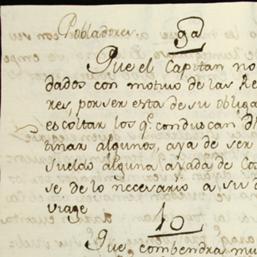 Pobladores.
9a
Que el Capitan no
dados con motivo de las Re
res, por ser esta de su obliga
escoltar los q.e conduscan
inar algunos, aya de ser
sueldo alguna ayuda de Cos
se de lo necesario a su
viage.
10
Que combendra mu